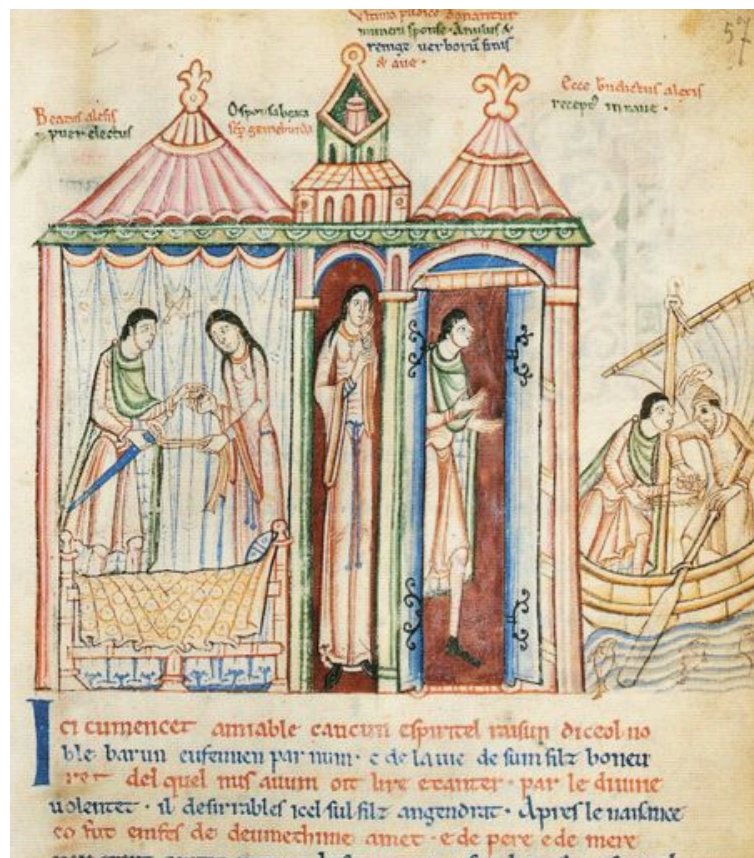 57
Vltima pudice donantur
munera sponse. Anulus &
renge verborū finis
& ave.
Beatus alexis
puer electus
O sponsa beata
sēp gemebunda
Ecce bñdictus alexis
recept' in nave.
Ici cumencet amiable cancun espiritel raisun diceol no
ble barun eufemien par num. e de la uie de sum filz boneu
ret del quel nus auum oit lire e canter. par le diuine
uolentet. il desirrables icel sul filz angendrat. Apres le naisance
co fut emfes de deu methime amet. e de pere e de mere